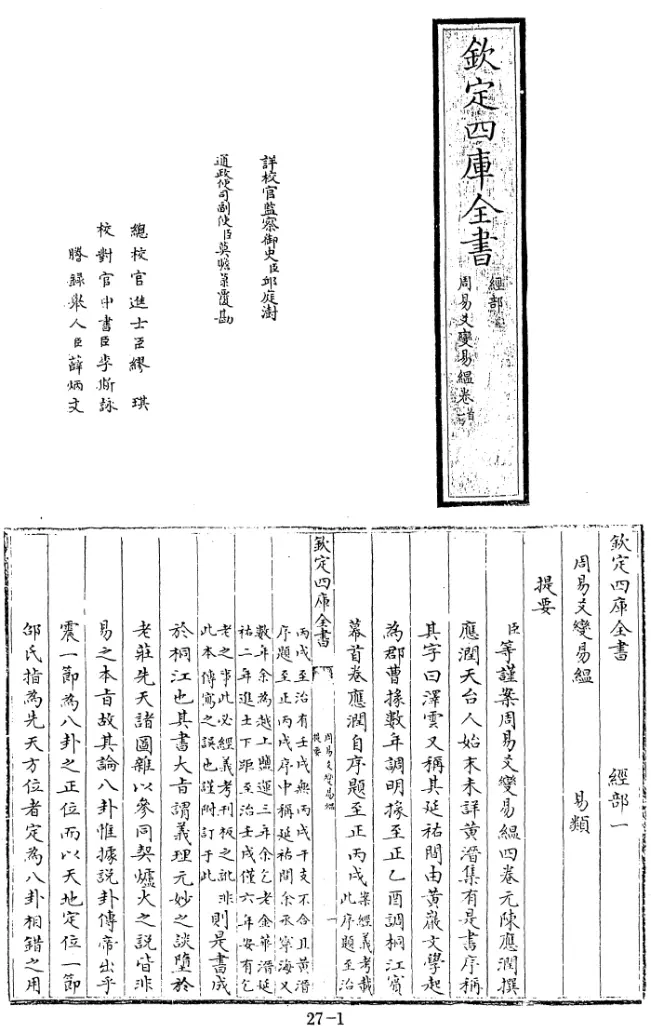 欽定四庫全書
經部
周易爻變易緼卷首
詳校官監察御史臣邱庭漋
通政使司副使臣莫瞻菉覆勘
總校官進士臣繆琪
校對官中書臣李斯詠
謄錄舉人臣薛炳文
欽定四庫全書 經部一
周易爻變易緼 易類
提要
臣等謹案周易爻變易緼四卷元陳應潤撰
應潤天台人始末未詳黃溍集有是書序稱
其字曰澤雲又稱其延祐間由黃巖文學起
為郡曹掾數年調明掾至正乙酉調桐江賓
幕首卷應潤自序題至正丙戌
案經義考載
此序題至治
欽定四庫全書
周易爻變易緼
提要
一
丙戌至治有壬戌無丙戌干支不合且黃溍
序題至正丙戌序中稱延祐間余丞寧海又
數年余為越上鹽運三年余乞老金華溍延
祐二年進士下距至治壬戌僅六年安有乞
老之事此必經義考刊板之訛
此本傳寫之誤也謹附訂于此
非則是書成
於桐江也其書大旨謂義理元妙之談墮於
老莊先天諸圖雜以參同契爐火之說皆非
易之本旨故其論八卦惟據說卦傳帝出乎
震一節為八卦之正位而以天地定位一節
邵氏指為先天方位者定為八卦相錯之用
27-1